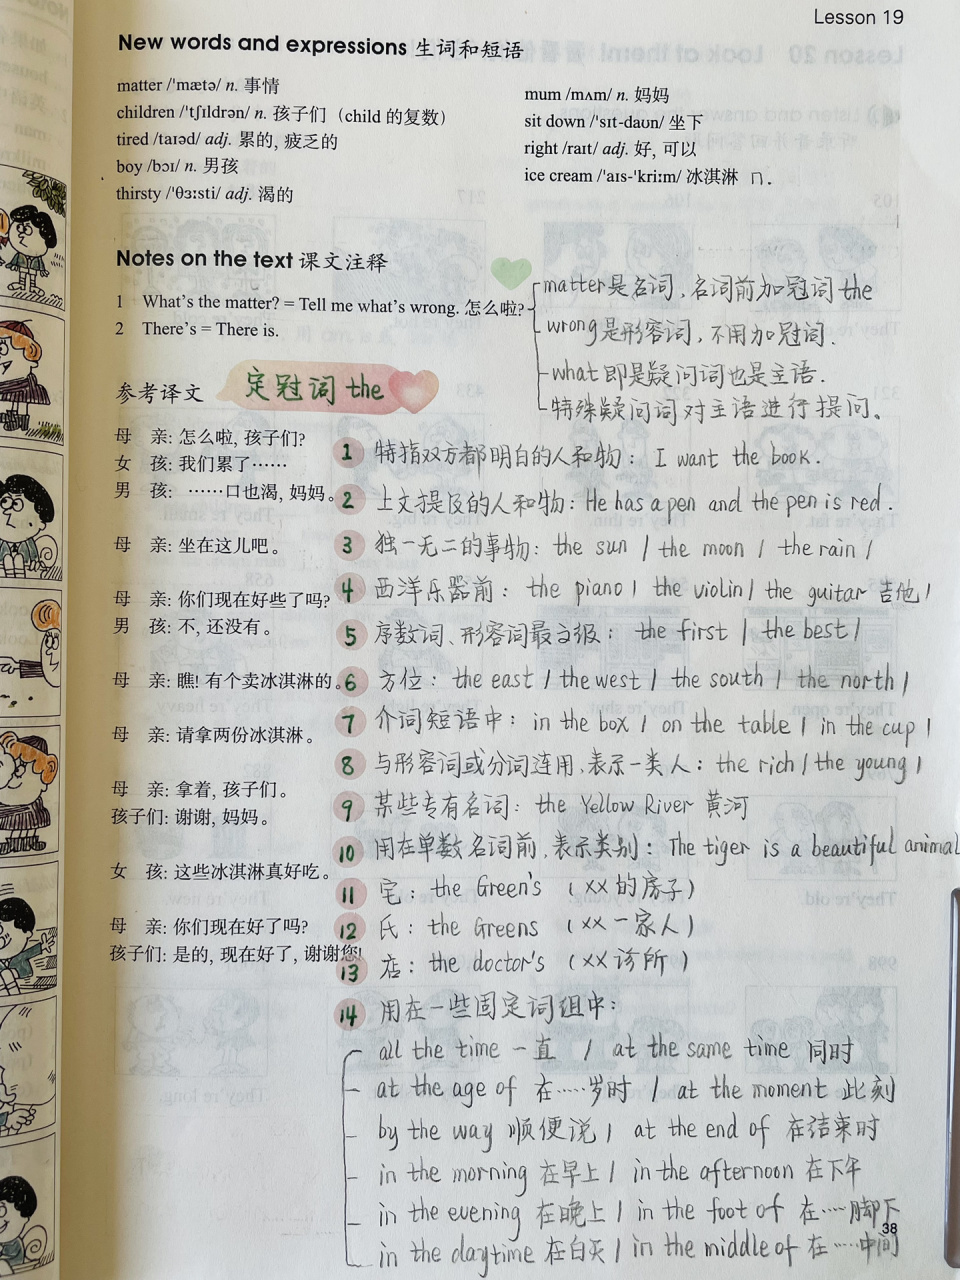 Lesson 19
New words and expressions 生词和短语
matter /'mætə/ n. 事情
children /'tʃɪldrən/ n. 孩子们（child 的复数）
tired /taɪəd/ adj. 累的, 疲乏的
boy /bɔɪ/ n. 男孩
thirsty /'θɜːsti/ adj. 渴的
mum /mʌm/ n. 妈妈
sit down /'sɪt-daʊn/ 坐下
right /raɪt/ adj. 好, 可以
ice cream /'aɪs-'kriːm/ 冰淇淋 n.
Notes on the text 课文注释
1 What's the matter? = Tell me what's wrong. 怎么啦?
2 There's = There is.
matter是名词,名词前加冠词the
wrong是形容词,不用加冠词.
what即是疑问词也是主语.
特殊疑问词对主语进行提问。
参考译文
母 亲: 怎么啦, 孩子们?
女 孩: 我们累了……
男 孩: ……口也渴, 妈妈。
母 亲: 坐在这儿吧。
母 亲: 你们现在好些了吗?
男 孩: 不, 还没有。
母 亲: 瞧! 有个卖冰淇淋的。
母 亲: 请拿两份冰淇淋。
母 亲: 拿着, 孩子们。
孩子们: 谢谢, 妈妈。
女 孩: 这些冰淇淋真好吃。
母 亲: 你们现在好了吗?
孩子们: 是的, 现在好了, 谢谢您!
定冠词 the
1 特指双方都明白的人和物: I want the book.
2 上文提及的人和物: He has a pen and the pen is red.
3 独一无二的事物: the sun / the moon / the rain /
4 西洋乐器前: the piano / the violin / the guitar 吉他 /
5 序数词、形容词最高级: the first / the best /
6 方位: the east / the west / the south / the north /
7 介词短语中: in the box / on the table / in the cup /
8 与形容词或分词连用,表示一类人: the rich / the young /
9 某些专有名词: the Yellow River 黄河
10 用在单数名词前,表示类别: The tiger is a beautiful animal
11 宅: the Green's (××的房子)
12 氏: the Greens (××一家人)
13 店: the doctor's (××诊所)
14 用在一些固定词组中:
all the time 一直 / at the same time 同时
at the age of 在……岁时 / at the moment 此刻
by the way 顺便说 / at the end of 在结束时
in the morning 在早上 / in the afternoon 在下午
in the evening 在晚上 / in the foot of 在……脚下
in the daytime 在白天 / in the middle of 在……中间
38